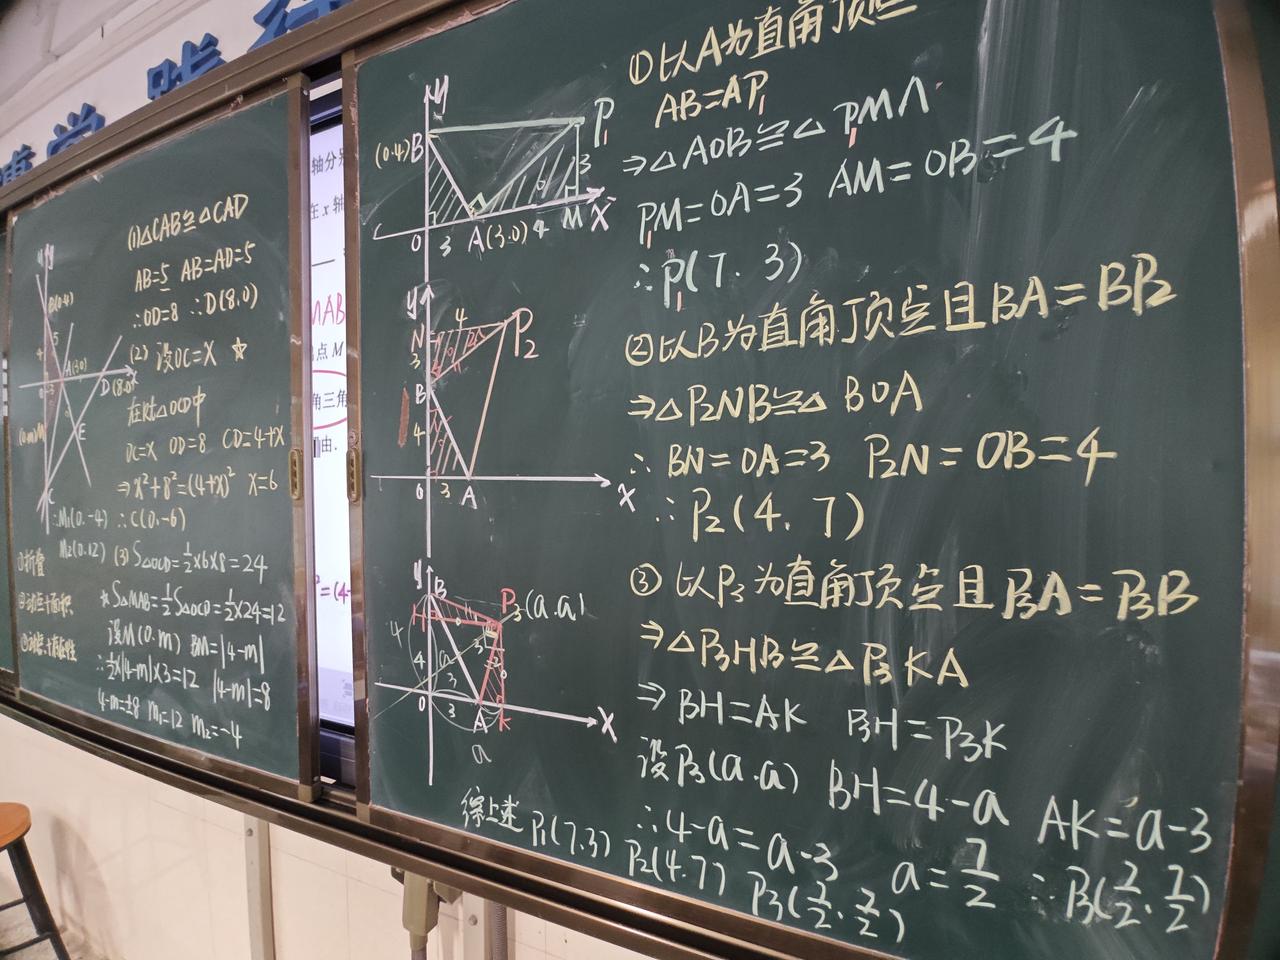 (1)△CAB≌△CAD
AB=5 AB=AD=5
∴OD=8 ∴D(8,0)
(2) 设OC=X ☆
在Rt△OCD中
OC=X OD=8 CD=4+X
⇒X²+8²=(4+X)² X=6
∴M₁(0,-4) ∴C(0,-6)
M₂(0,12) (3) S△OCD=½×6×8=24
☆S△MAB=½S△OCD=½×24=12
设M(0,m) BM=|4-m|
∴½×|4-m|×3=12 |4-m|=8
4-m=±8 m₁=12 m₂=-4
①折叠
B(0,4)
5
4
A(3,0)
3
D(8,0)
E
C
y
轴分别
在x轴
MAB
点M
角三角
由.
y
B
(0,4)
P₁
3
0
3
A(3,0)
4
M
X
y
4
N
P₂
3
B
4
0
3
A
X
y
B
H
P₃(a,a)
4
4
a
3
0
3
A
K
X
a
①以A为直角顶点
AB=AP₁
⇒△AOB≌△P₁MA
P₁M=OA=3 AM=OB=4
∴P₁(7,3)
②以B为直角顶点且BA=BP₂
⇒△P₂NB≌△BOA
∴BN=OA=3 P₂N=OB=4
∴P₂(4,7)
③以P₃为直角顶点且P₃A=P₃B
⇒△P₃HB≌△P₃KA
⇒BH=AK P₃H=P₃K
设P₃(a,a) BH=4-a AK=a-3
∴4-a=a-3 a=7/2 ∴P₃(7/2,7/2)
综上述 P₁(7,3) P₂(4,7) P₃(7/2,7/2)